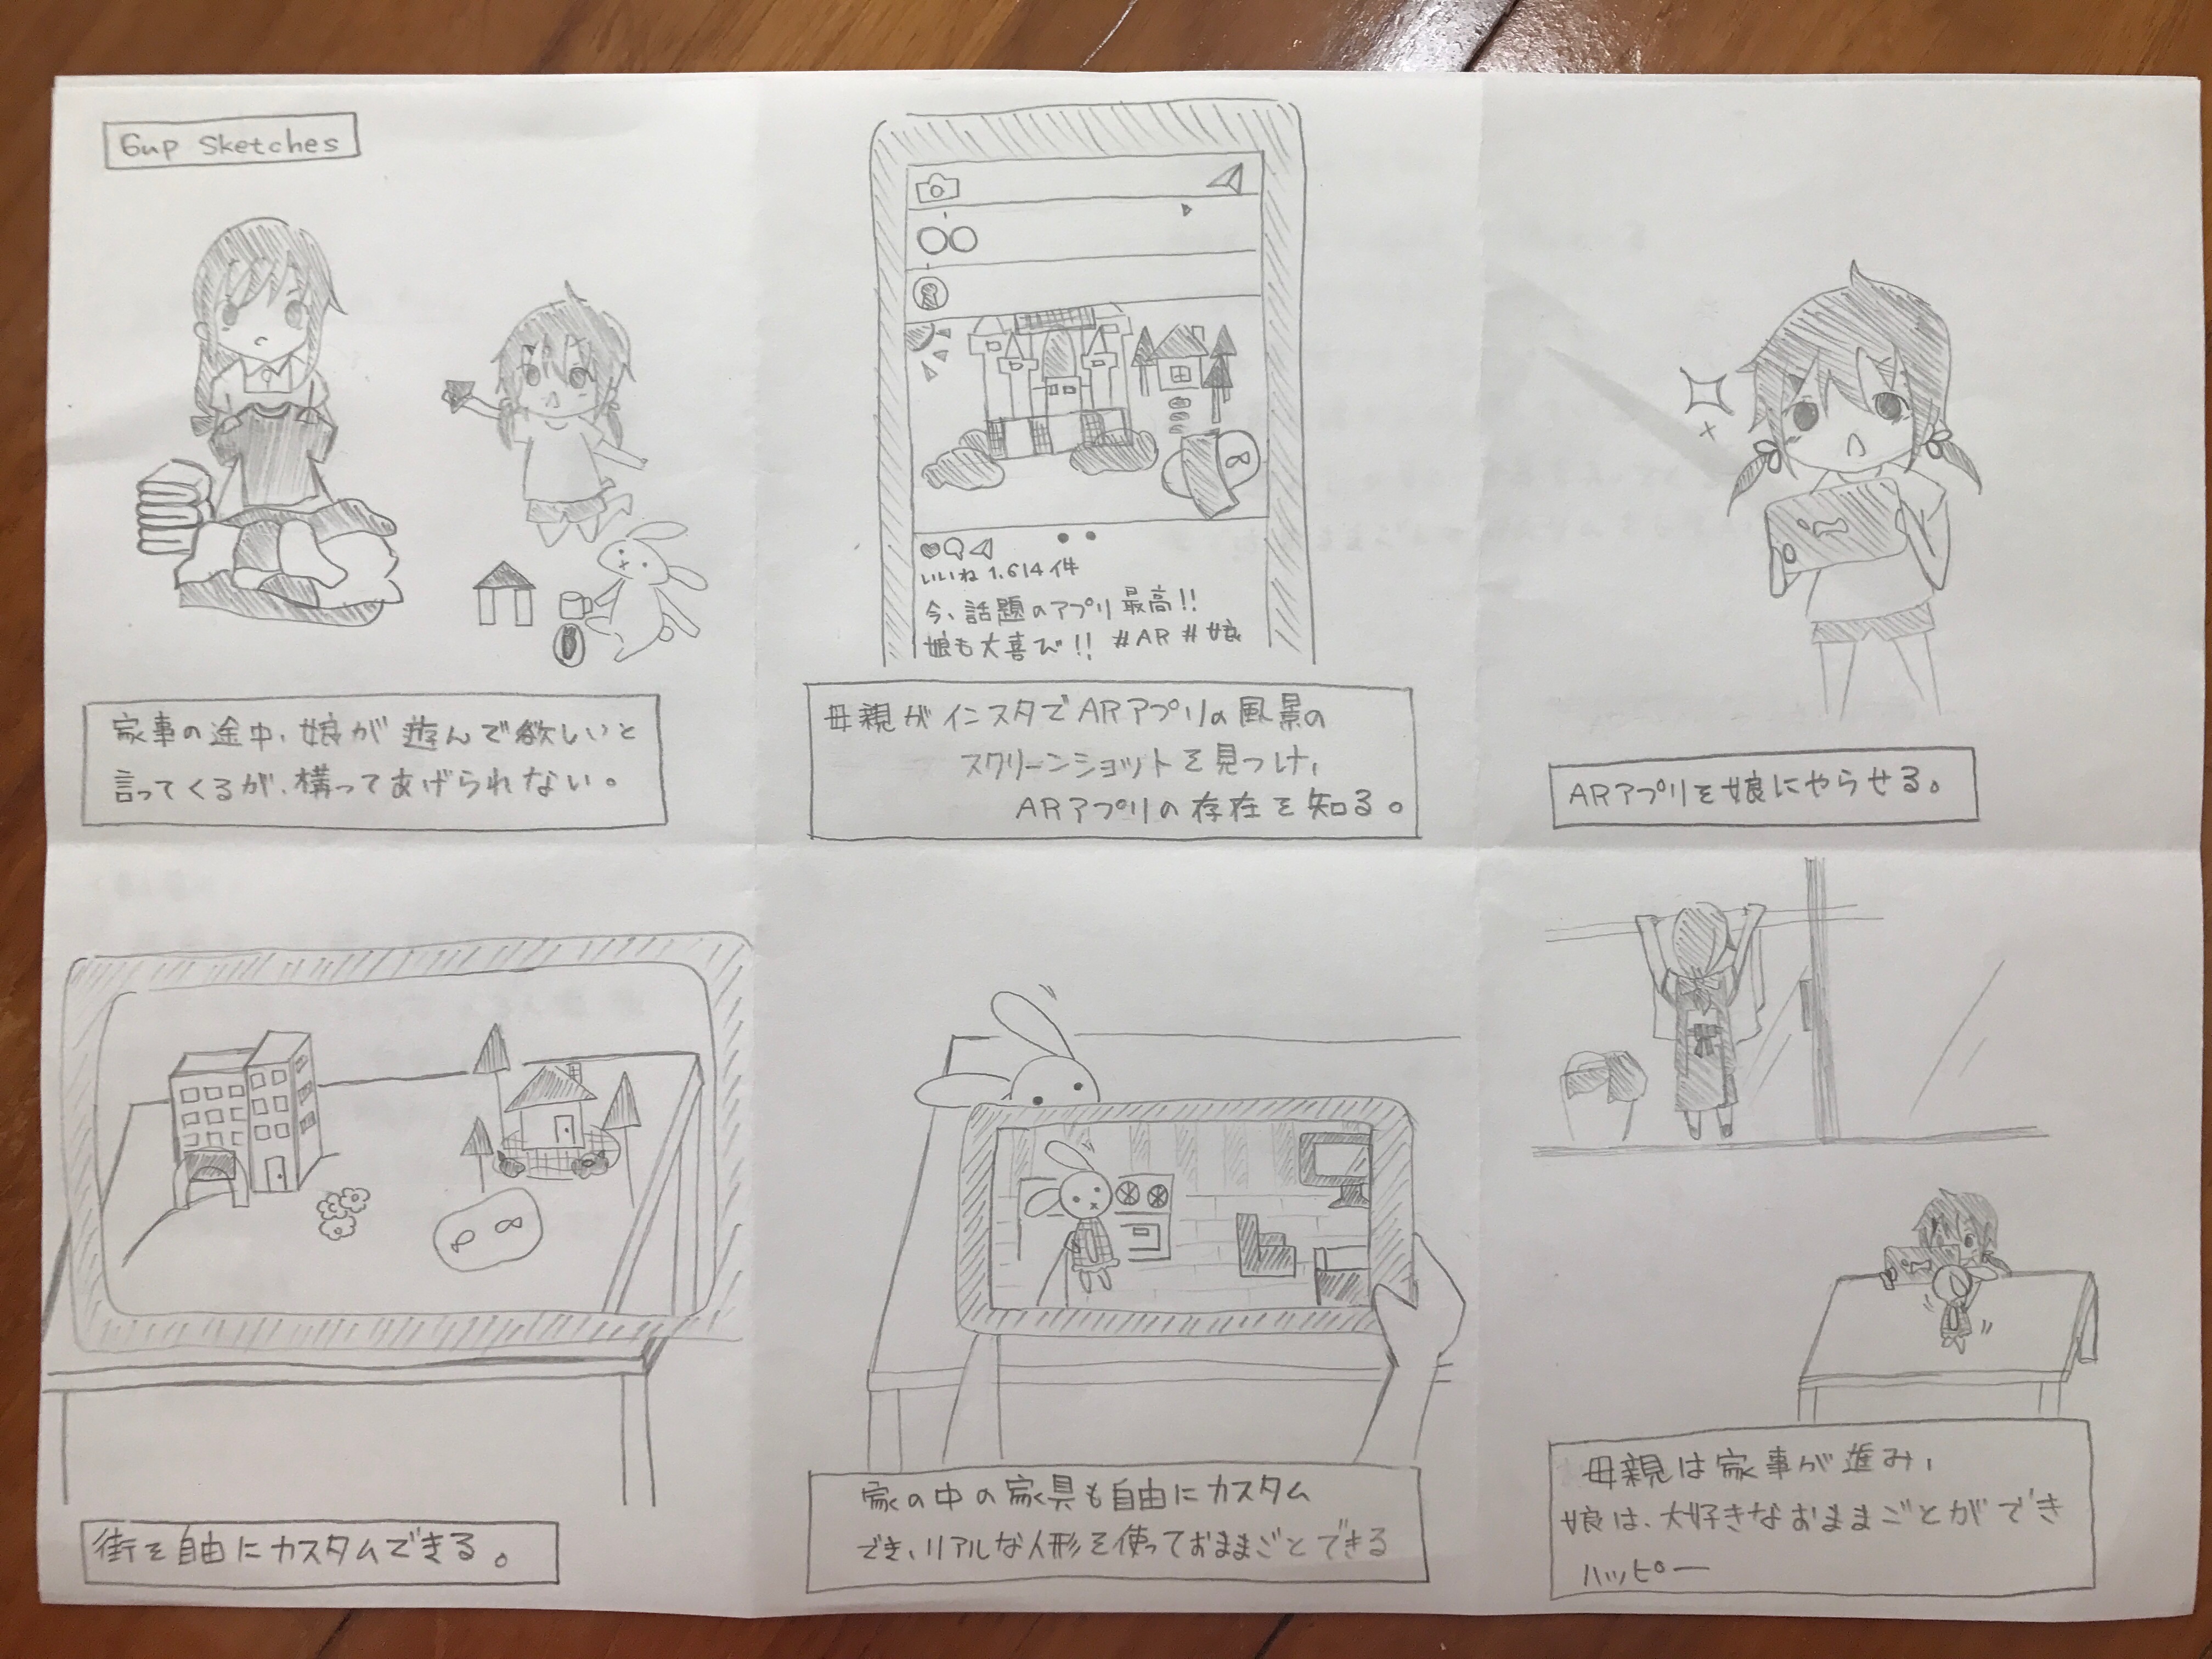 6up Sketches
家事の途中、娘が遊んで欲しいと
言ってくるが、構ってあげられない。
いいね 1.614件
今、話題のアプリ最高!!
娘も大喜び!! #AR #娘
母親がインスタでARアプリの風景の
スクリーンショットを見つけ、
ARアプリの存在を知る。
ARアプリを娘にやらせる。
街を自由にカスタムできる。
家の中の家具も自由にカスタム
でき、リアルな人形を使っておままごとできる
母親は家事が進み、
娘は、大好きなおままごとができ
ハッピー